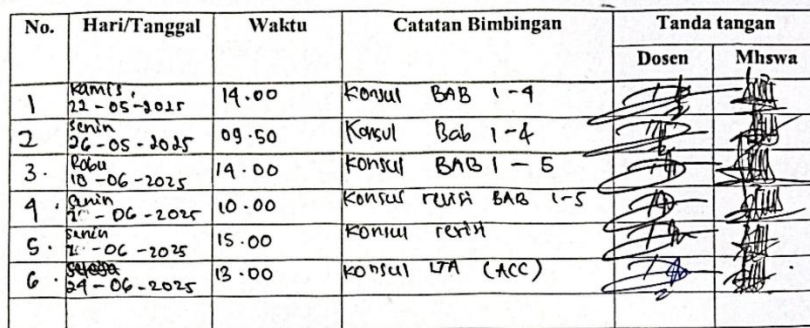 No. Hari/Tanggal Waktu Catatan Bimbingan Tanda tangan
Dosen Mhswa
1 Kamis, 22-05-2025 14.00 Konsul BAB 1-4
2 Senin 26-05-2025 09.50 Konsul Bab 1-4
3. Rabu 18-06-2025 14.00 Konsul BAB 1-5
4. Senin -06-2025 10.00 Konsul revisi BAB 1-5
5. Senin -06-2025 15.00 Konsul revisi
6. 24-06-2025 13.00 Konsul LTA (ACC)